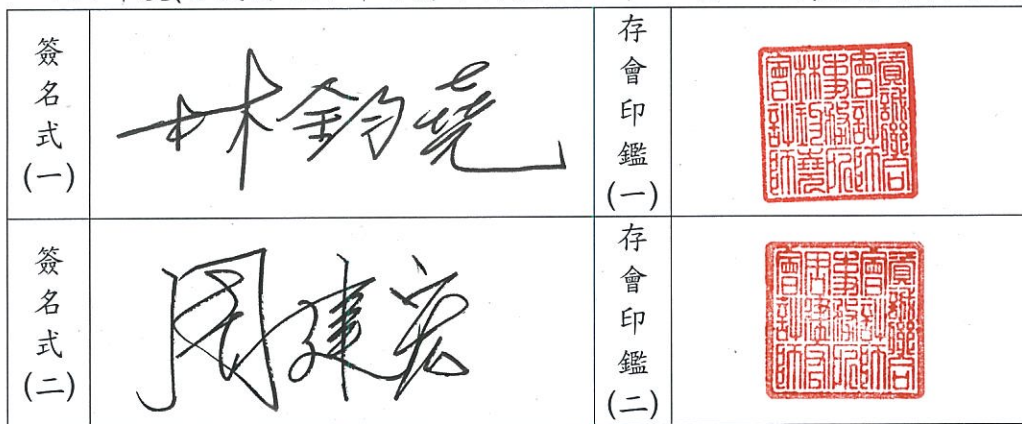 簽名式(一)
林鈞堯
存會印鑑(一)
資誠聯合會計師事務所林鈞堯會計師
簽名式(二)
周建宏
存會印鑑(二)
資誠聯合會計師事務所周建宏會計師